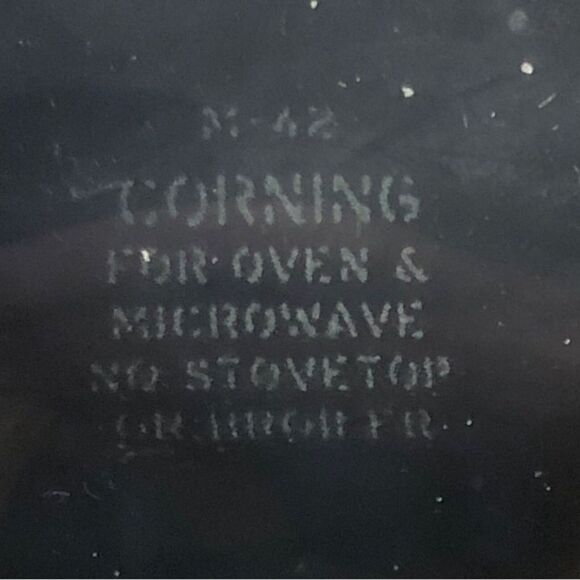 M-42
CORNING
FOR OVEN &
MICROWAVE
NO STOVETOP
OR BROILER